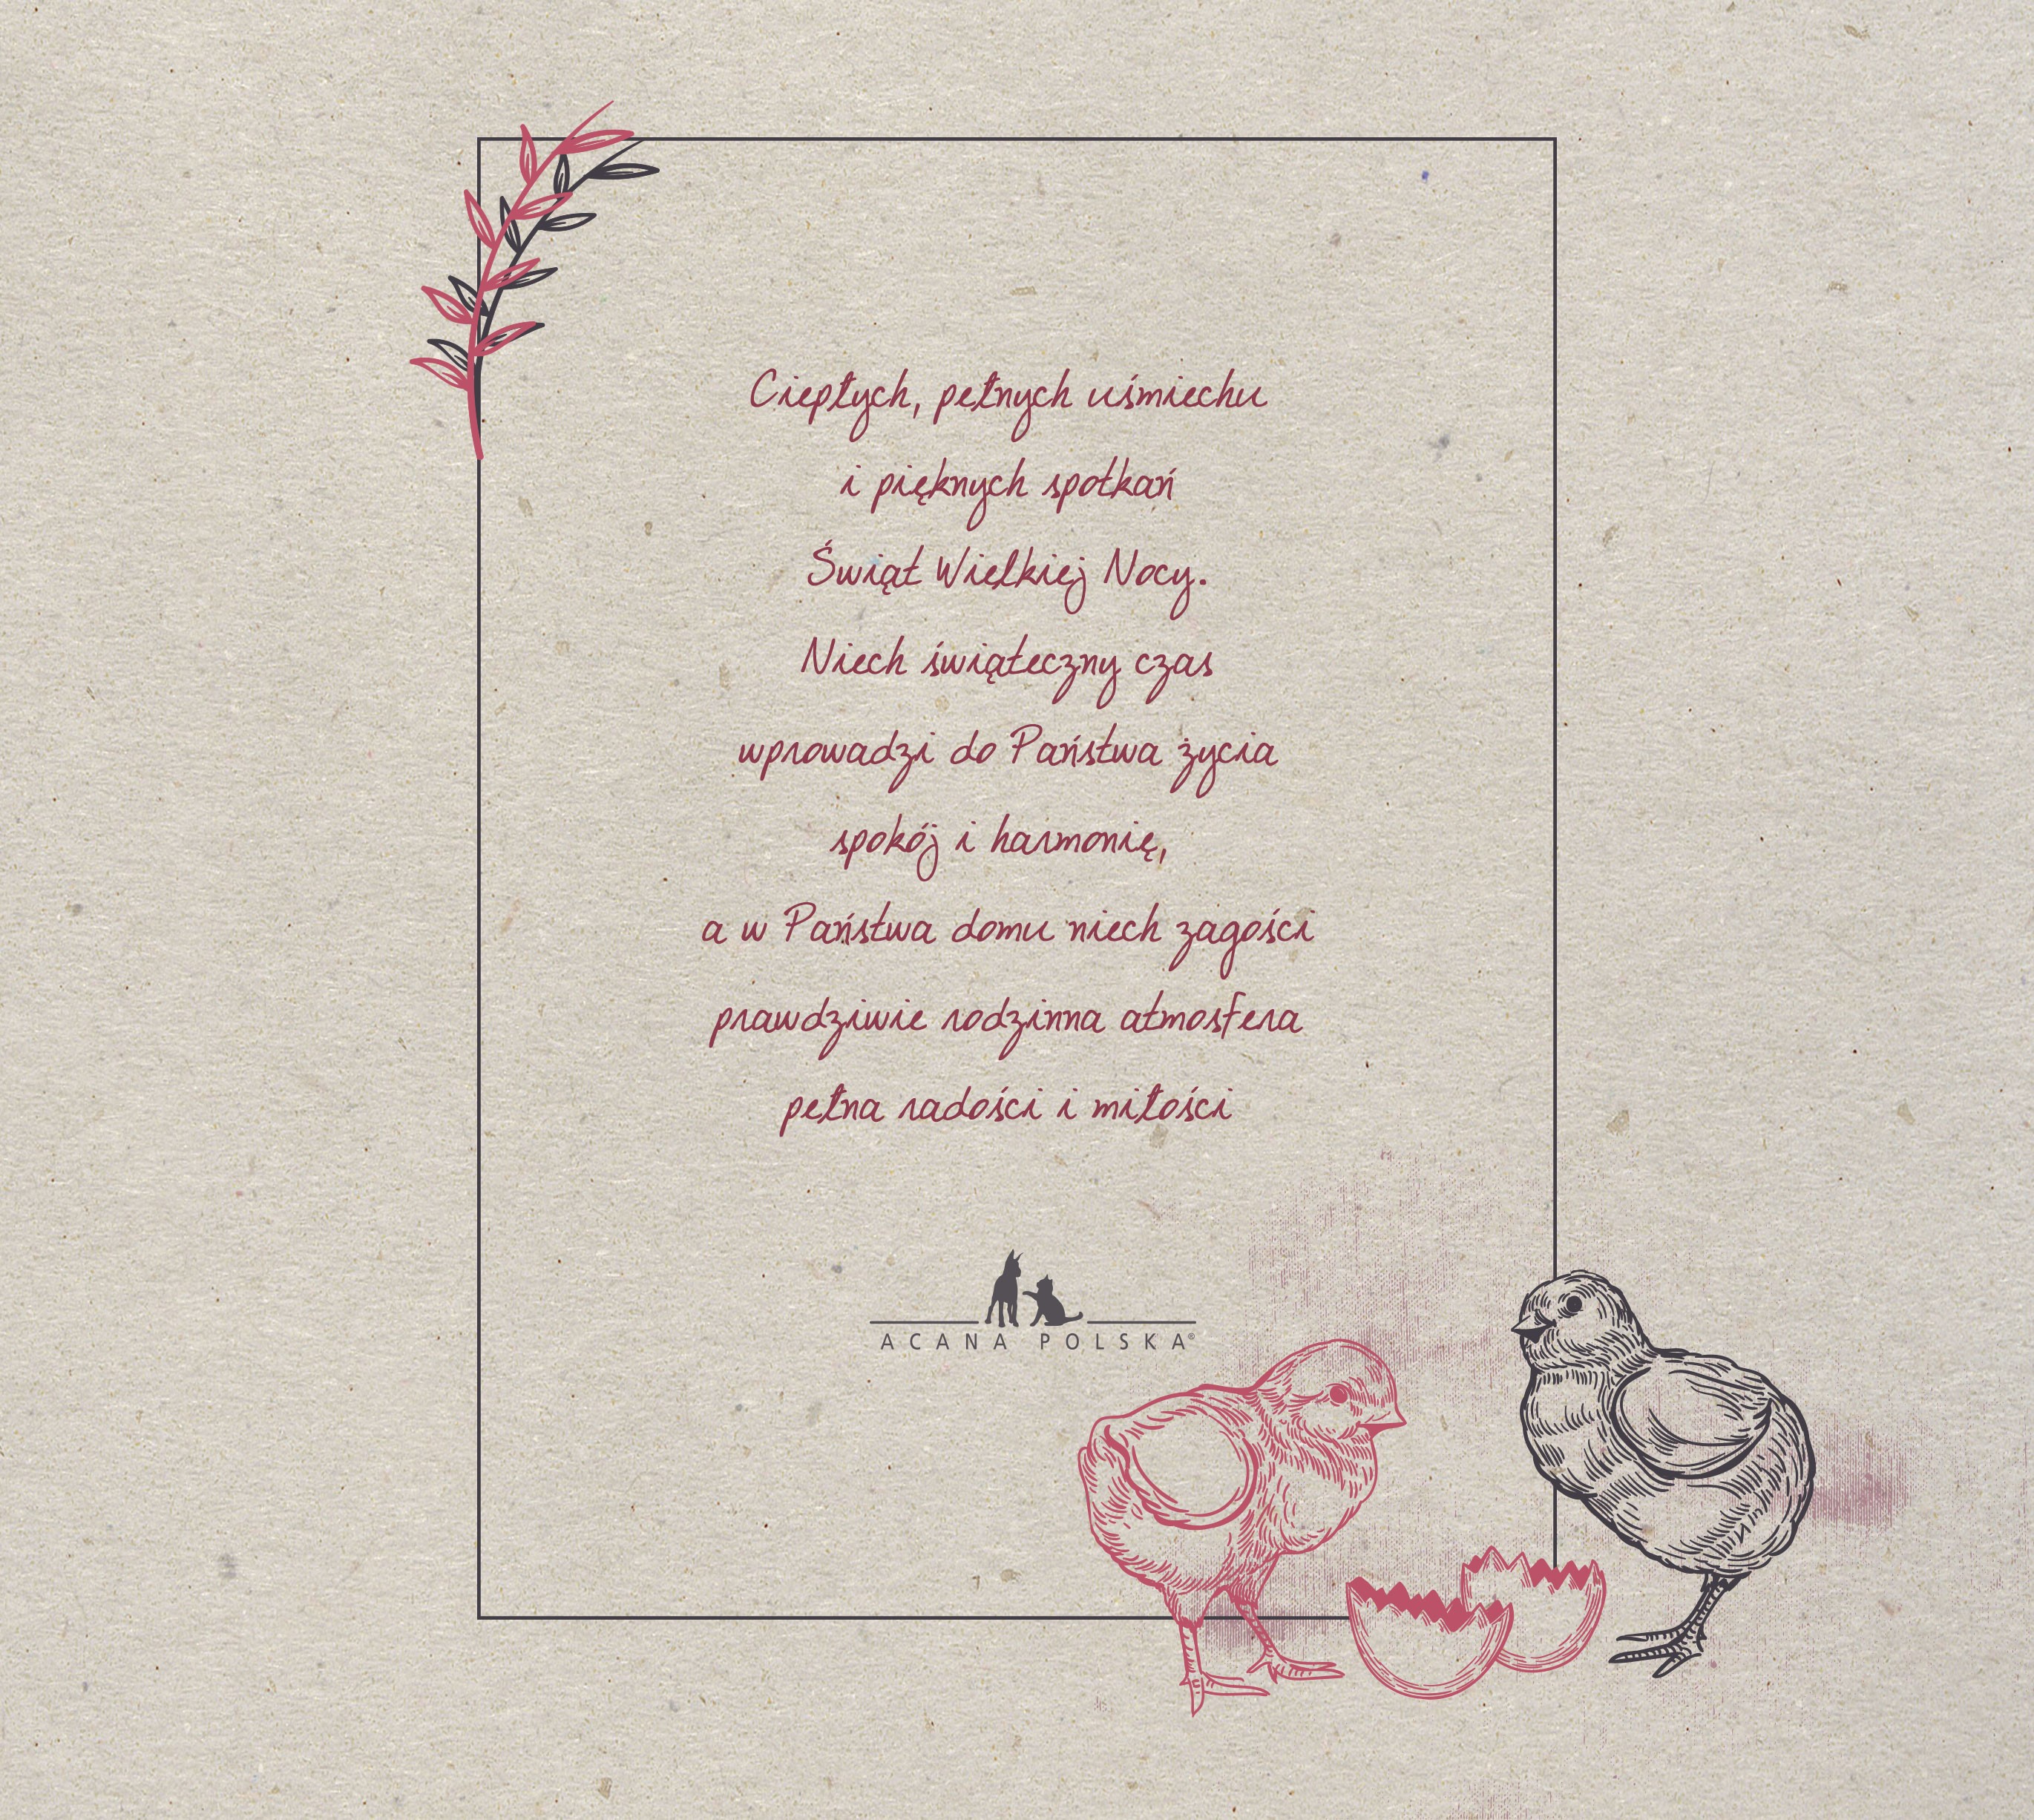 Ciepłych, pełnych uśmiechu
i pięknych spotkań
Świąt Wielkiej Nocy.
Niech świąteczny czas
wprowadzi do Państwa życia
spokój i harmonię,
a w Państwa domu niech zagości
prawdziwie rodzinna atmosfera
pełna radości i miłości
ACANA POLSKA®